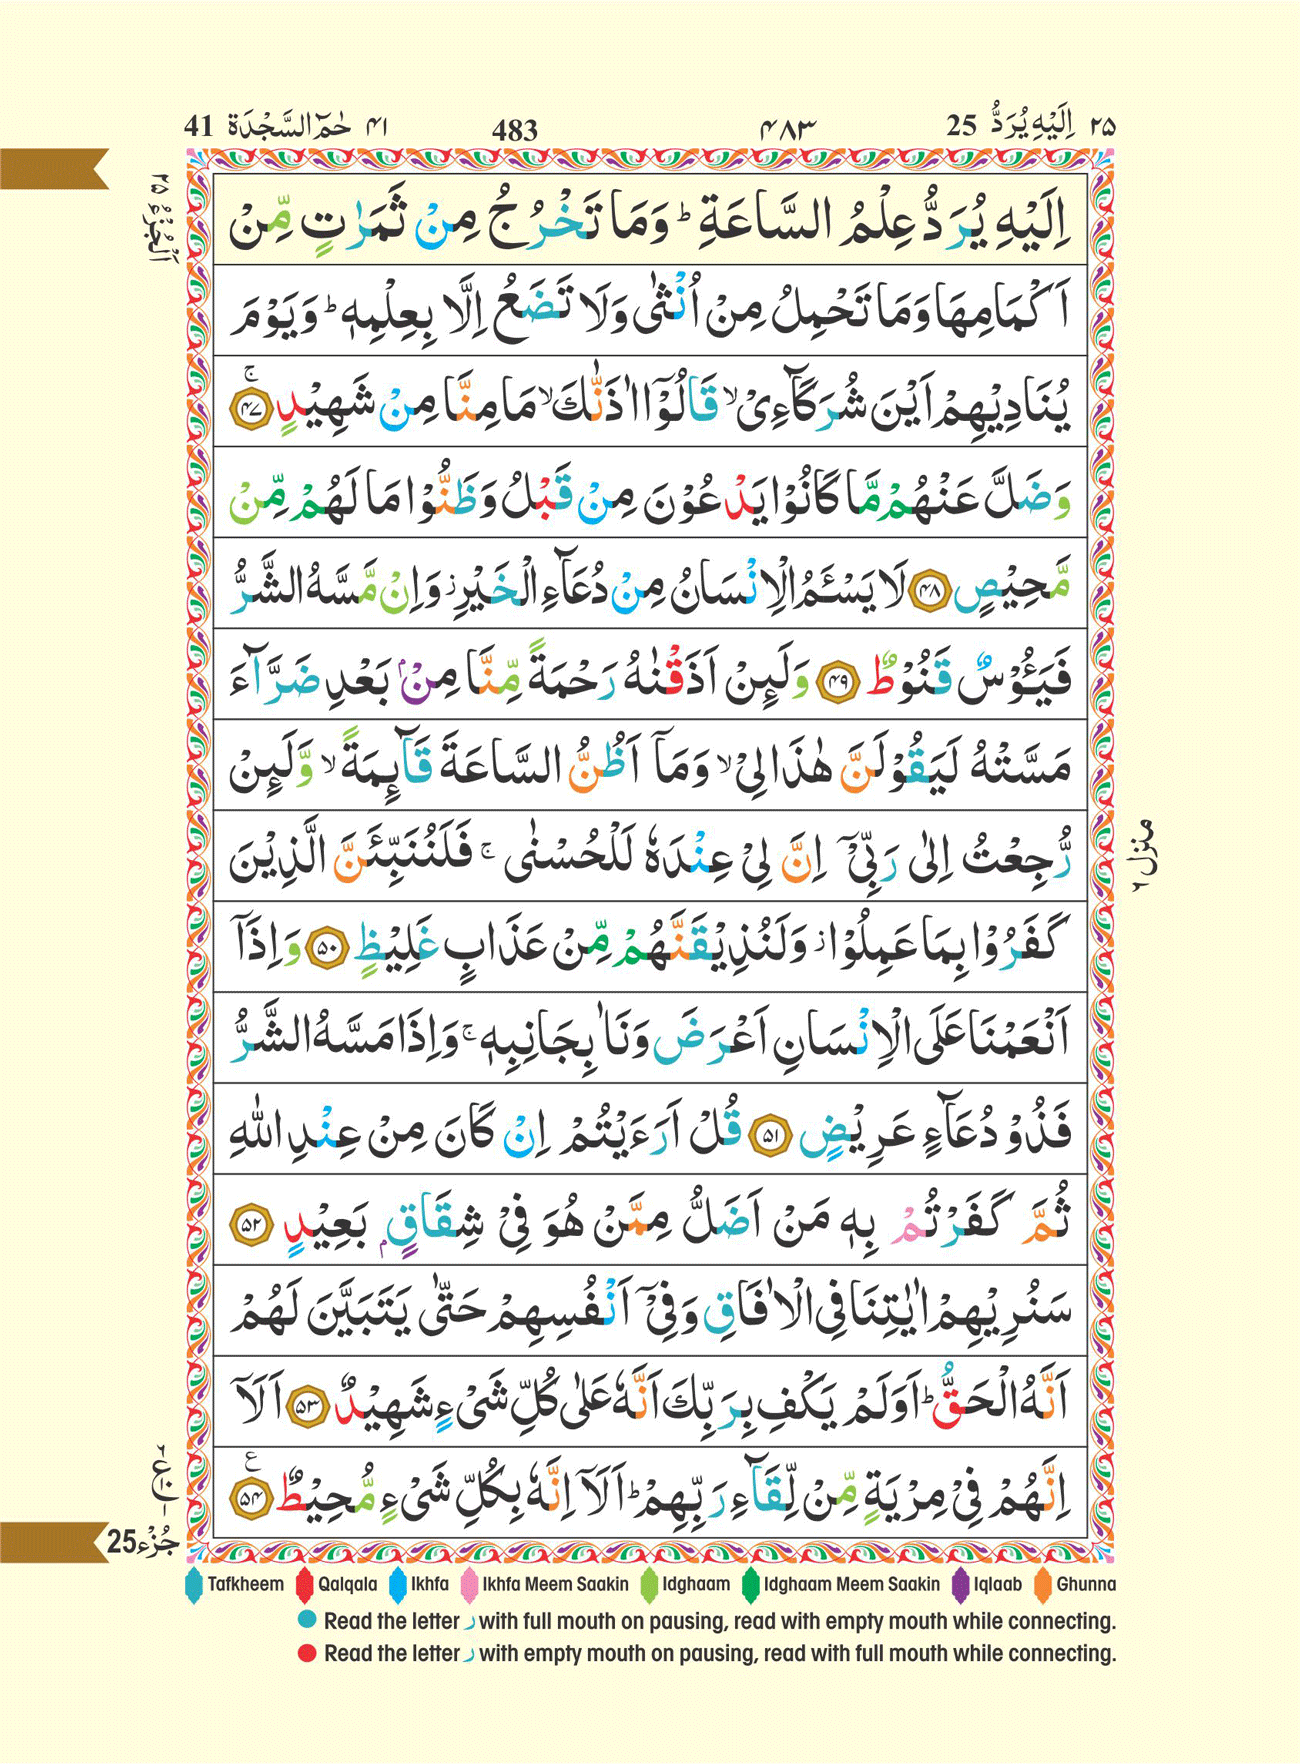 ٢٥ اِلَيْهِ يُرَدُّ 25 ۴۸۳ 483 ۴۱ حٰمٓ السَّجْدَة 41
اَلْجُزْءُ ٢٥
اِلَيْهِ يُرَدُّ عِلْمُ السَّاعَةِ ؕ وَمَا تَخْرُجُ مِنْ ثَمَرٰتٍ مِّنْ
اَكْمَامِهَا وَمَا تَحْمِلُ مِنْ اُنْثٰى وَلَا تَضَعُ اِلَّا بِعِلْمِهٖ ؕ وَيَوْمَ
يُنَادِيْهِمْ اَيْنَ شُرَكَآءِىْ ۙ قَالُوْٓا اٰذَنّٰكَ ۙ مَا مِنَّا مِنْ شَهِيْدٍ ۚ ﴿۴۷﴾
وَضَلَّ عَنْهُمْ مَّا كَانُوْا يَدْعُوْنَ مِنْ قَبْلُ وَظَنُّوْا مَا لَهُمْ مِّنْ
مَّحِيْصٍ ﴿۴۸﴾ لَا يَسْـَٔمُ الْاِنْسَانُ مِنْ دُعَآءِ الْخَيْرِ ز وَاِنْ مَّسَّهُ الشَّرُّ
فَيَـُٔوْسٌ قَنُوْطٌ ﴿۴۹﴾ وَلَئِنْ اَذَقْنٰهُ رَحْمَةً مِّنَّا مِنْۢ بَعْدِ ضَرَّآءَ
مَسَّتْهُ لَيَقُوْلَنَّ هٰذَا لِىْ ۙ وَمَآ اَظُنُّ السَّاعَةَ قَآئِمَةً ۙ وَّلَئِنْ
رُّجِعْتُ اِلٰى رَبِّىْٓ اِنَّ لِىْ عِنْدَهٗ لَلْحُسْنٰى ۚ فَلَنُنَبِّئَنَّ الَّذِيْنَ
كَفَرُوْا بِمَا عَمِلُوْا ز وَلَنُذِيْقَنَّهُمْ مِّنْ عَذَابٍ غَلِيْظٍ ﴿۵۰﴾ وَاِذَآ
اَنْعَمْنَا عَلَى الْاِنْسَانِ اَعْرَضَ وَنَاٰ بِجَانِبِهٖ ۚ وَاِذَا مَسَّهُ الشَّرُّ
فَذُوْ دُعَآءٍ عَرِيْضٍ ﴿۵۱﴾ قُلْ اَرَءَيْتُمْ اِنْ كَانَ مِنْ عِنْدِ اللّٰهِ
ثُمَّ كَفَرْتُمْ بِهٖ مَنْ اَضَلُّ مِمَّنْ هُوَ فِىْ شِقَاقٍۭ بَعِيْدٍ ﴿۵۲﴾
سَنُرِيْهِمْ اٰيٰتِنَا فِى الْاٰفَاقِ وَفِىْٓ اَنْفُسِهِمْ حَتّٰى يَتَبَيَّنَ لَهُمْ
اَنَّهُ الْحَقُّ ؕ اَوَلَمْ يَكْفِ بِرَبِّكَ اَنَّهٗ عَلٰى كُلِّ شَىْءٍ شَهِيْدٌ ﴿۵۳﴾ اَلَآ
اِنَّهُمْ فِىْ مِرْيَةٍ مِّنْ لِّقَآءِ رَبِّهِمْ ؕ اَلَآ اِنَّهٗ بِكُلِّ شَىْءٍ مُّحِيْطٌ ﴿۵۴﴾ ع
منزل ٦
جُزْء 25
Tafkheem Qalqala Ikhfa Ikhfa Meem Saakin Idghaam Idghaam Meem Saakin Iqlaab Ghunna
Read the letter ر with full mouth on pausing, read with empty mouth while connecting.
Read the letter ر with empty mouth on pausing, read with full mouth while connecting.